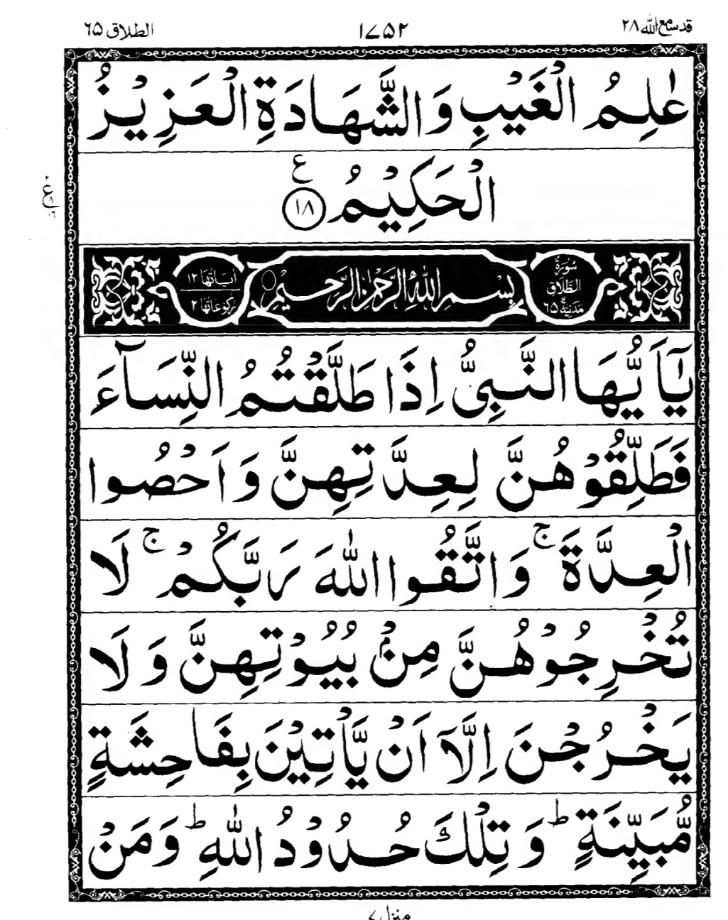 قد سمع الله ٢٨
١٧٥٢
الطلاق ٦٥
عٰلِمُ الْغَيْبِ وَالشَّهَادَةِ الْعَزِيْزُ
الْحَكِيْمُ ع ١٨
ع
سُوْرَةُ الطَّلَاقِ مَدَنِيَّةٌ ٦٥
بِسْمِ اللّٰهِ الرَّحْمٰنِ الرَّحِيْمِ
اٰيَاتُهَا ١٢
رُكُوْعَاتُهَا ٢
يٰۤاَيُّهَا النَّبِىُّ اِذَا طَلَّقْتُمُ النِّسَآءَ
فَطَلِّقُوْهُنَّ لِعِدَّتِهِنَّ وَاَحْصُوا
الْعِدَّةَ ۚ وَاتَّقُوا اللّٰهَ رَبَّكُمْ ۚ لَا
تُخْرِجُوْهُنَّ مِنْۢ بُيُوْتِهِنَّ وَلَا
يَخْرُجْنَ اِلَّاۤ اَنْ يَّاْتِيْنَ بِفَاحِشَةٍ
مُّبَيِّنَةٍ ؕ وَتِلْكَ حُدُوْدُ اللّٰهِ ؕ وَمَنْ
منزل ٧